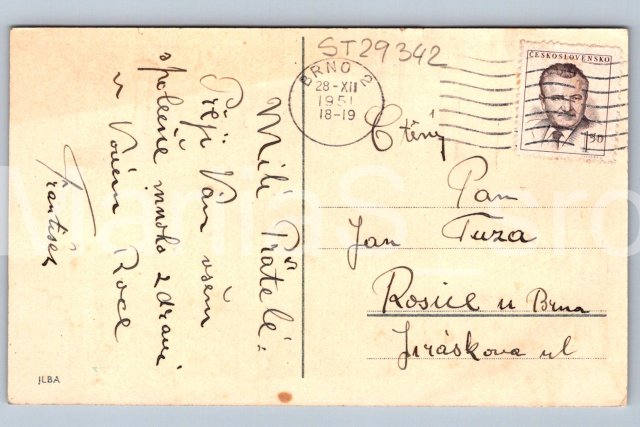 ST29342
BRNO 2
28-XII
1951
18-19
ČESKOSLOVENSKO
1,50
Milí Přátelé!
Přeji Vám všem
společně mnoho zdraví
v Novém Roce
František
Ctěný
Pan
Jan Tuza
Rosice u Brna
Jiráskova ul
JLBA